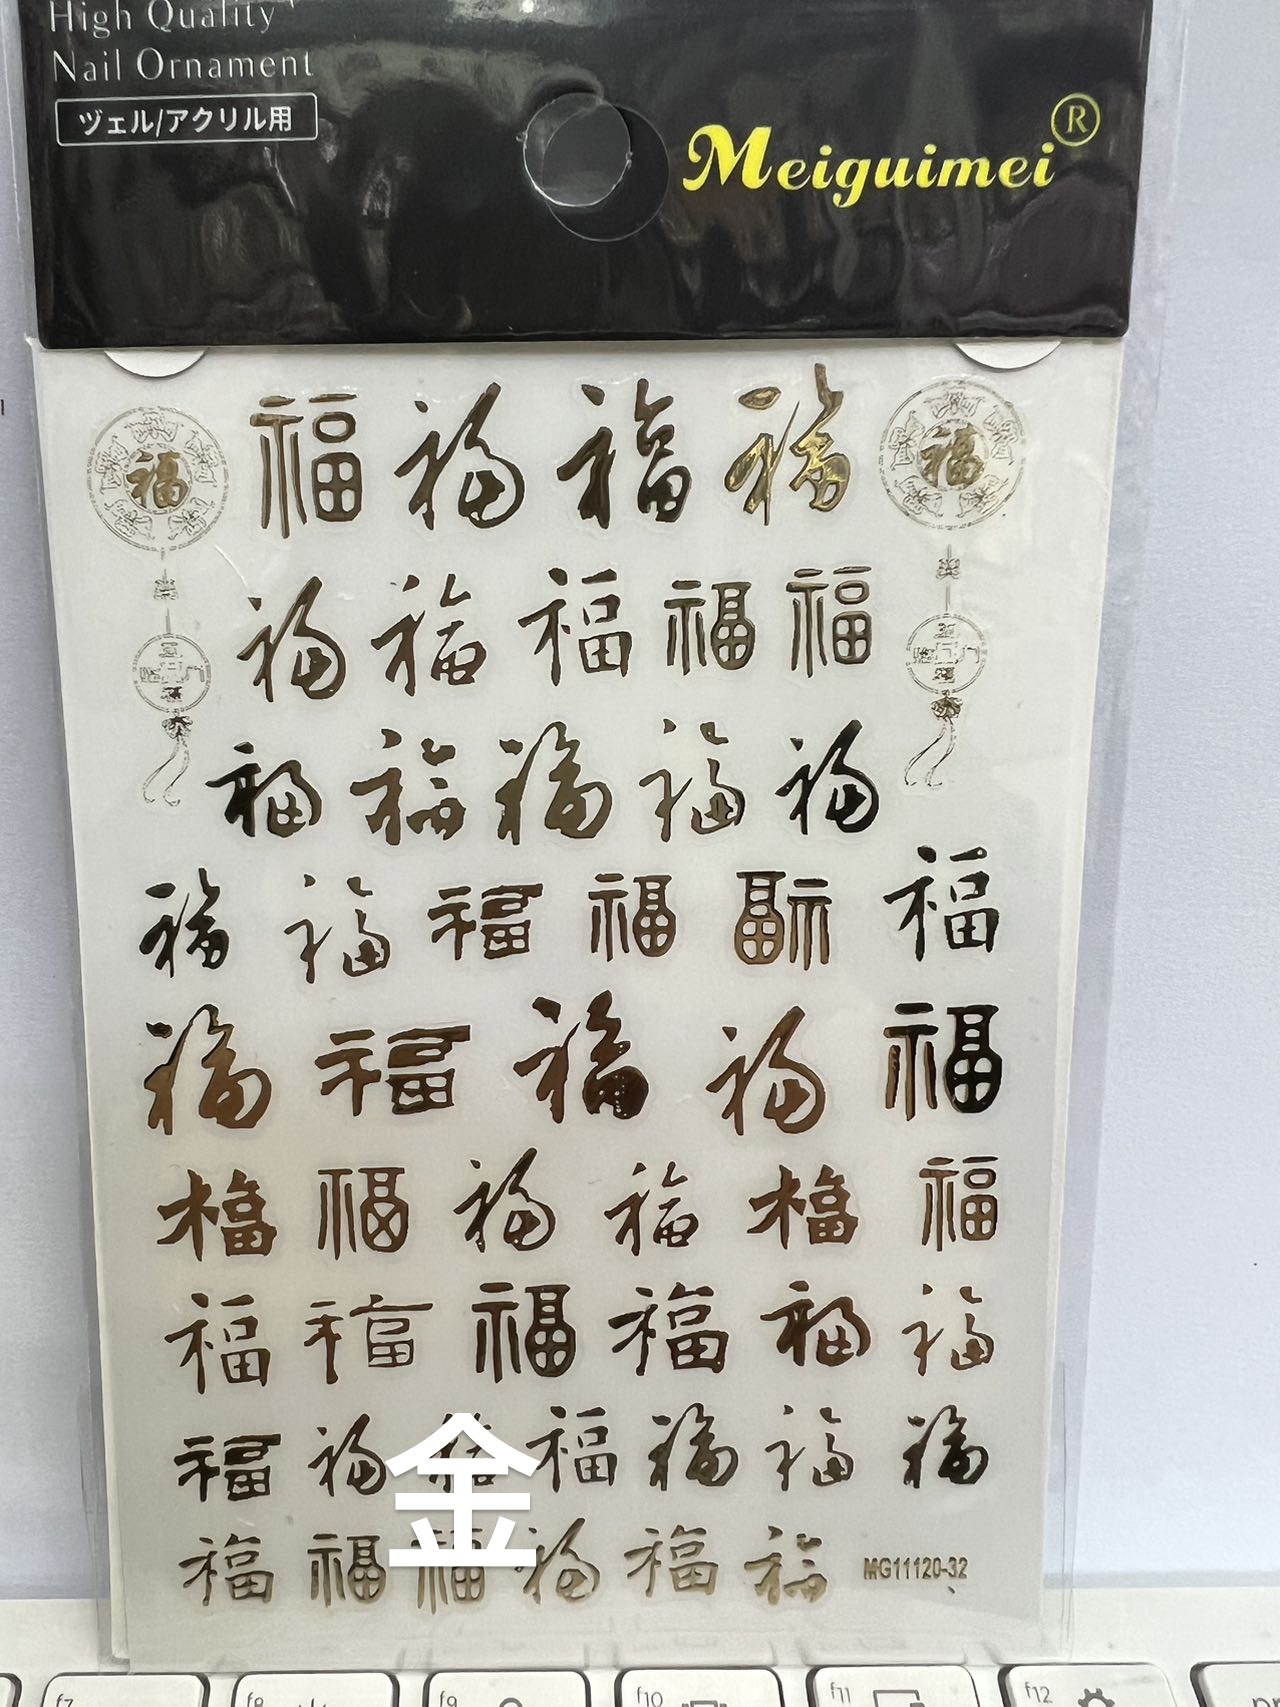 High Quality
Nail Ornament
ヅェル/アクリル用
Meiguimei®
福 福 福 福 福 福
福 福 福 福 福
福 福 福 福 福
福 福 福 福 福 福
福 福 福 福 福
福 福 福 福 福 福
福 福 福 福 福 福
福 福 福 福 福 福 福
金
福 福 福 福 福 福 MG11120-32
f7 f8 f9 f10 f11 f12